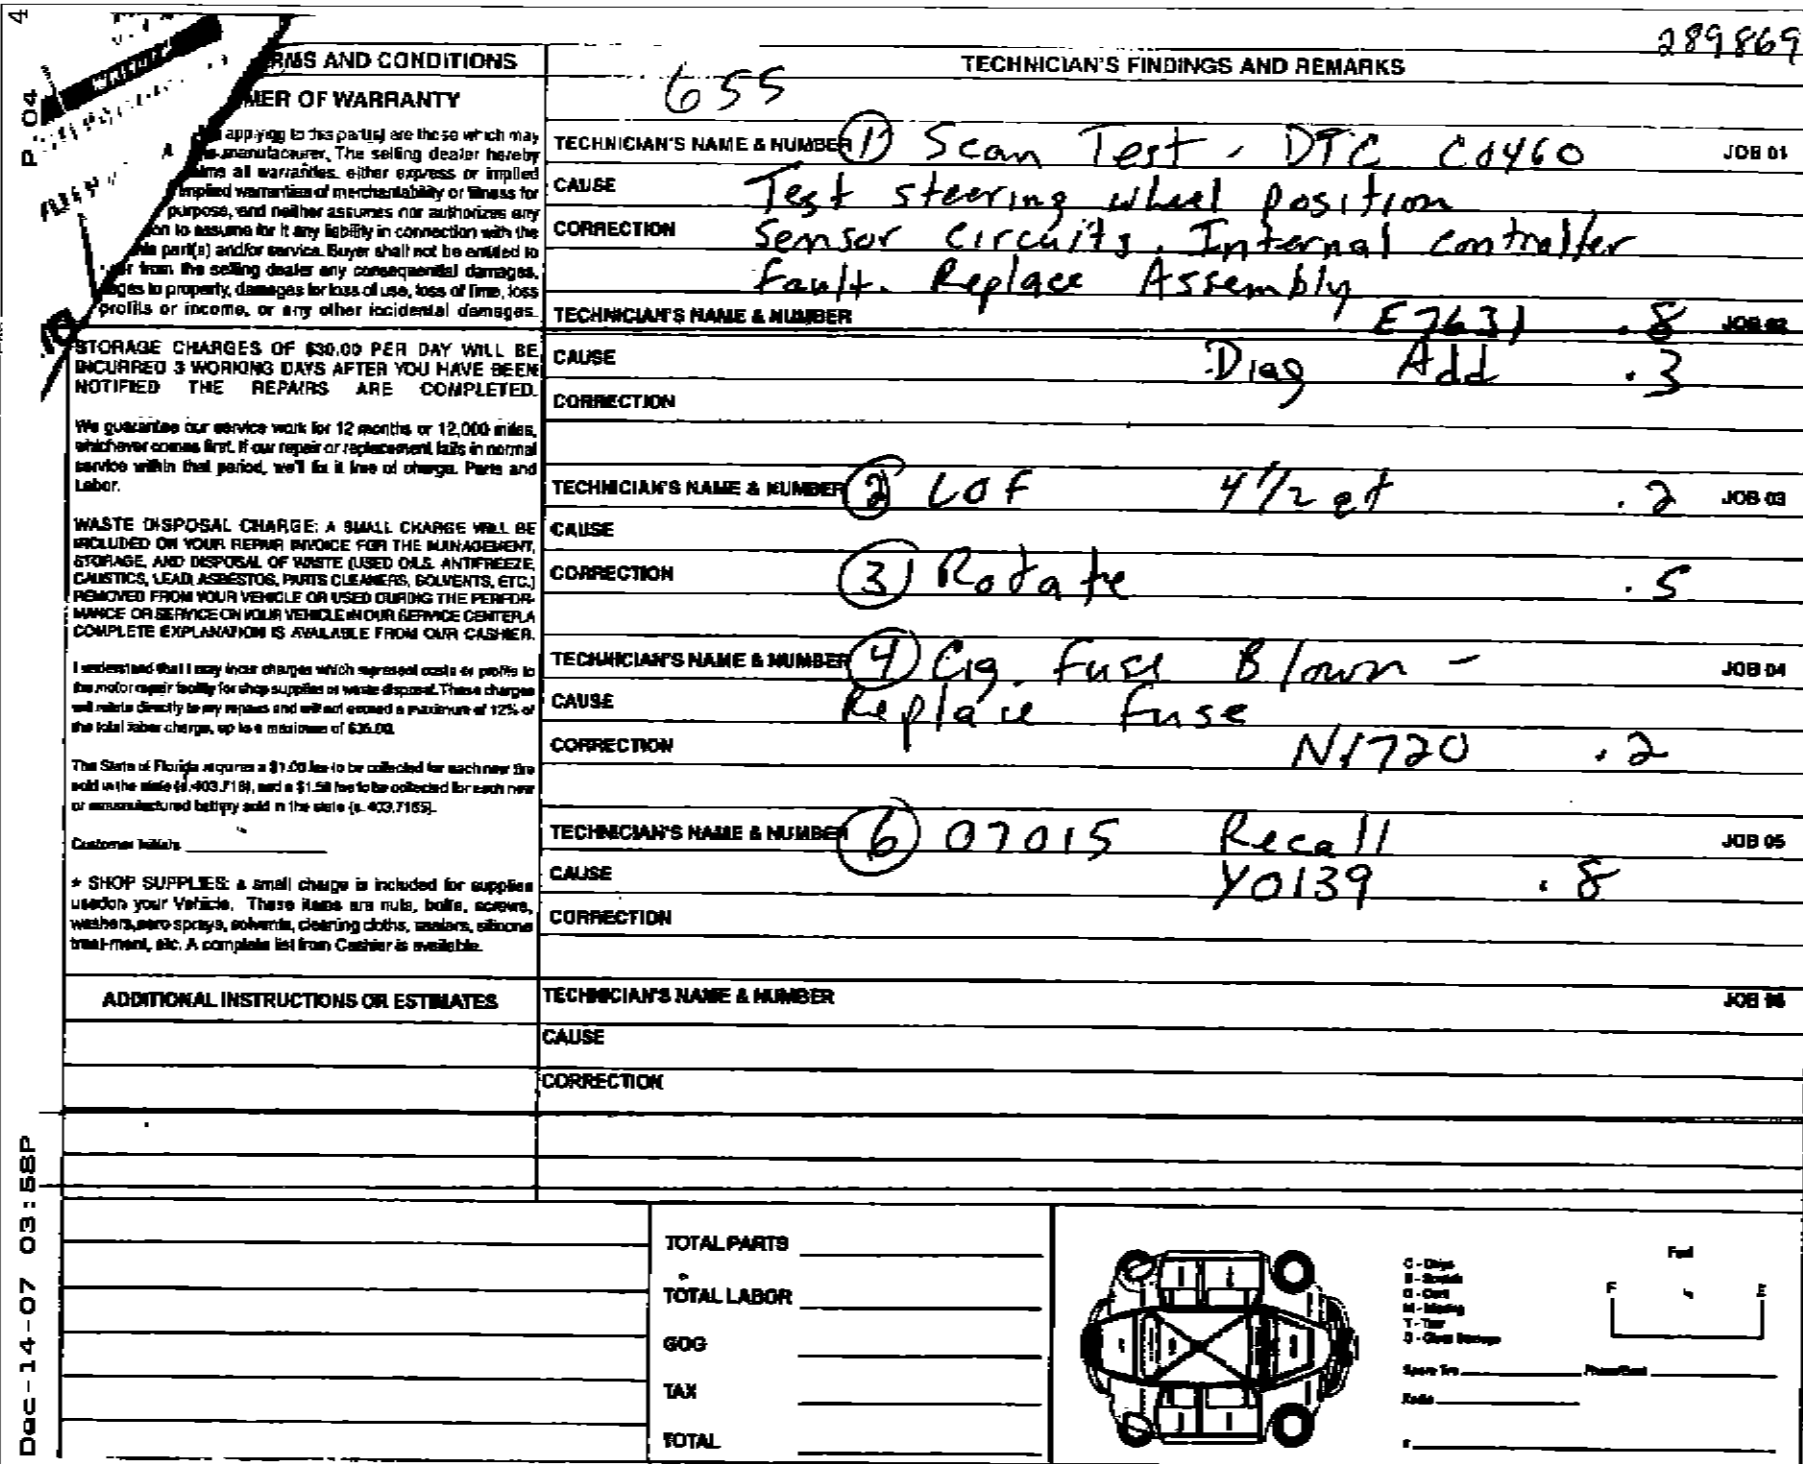 4
P 04
289869
RMS AND CONDITIONS
MER OF WARRANTY
applying to this part(s) are those which may
manufacturer, The selling dealer hereby
all warranties, either express or implied
implied warranties of merchantability or fitness for
purpose, and neither assumes nor authorizes any
on to assume for it any liability in connection with the
part(s) and/or service. Buyer shall not be entitled to
from the selling dealer any consequential damages,
ages to property, damages for loss of use, loss of time, loss
profits or income, or any other incidental damages.
STORAGE CHARGES OF $30.00 PER DAY WILL BE
INCURRED 3 WORKING DAYS AFTER YOU HAVE BEEN
NOTIFIED THE REPAIRS ARE COMPLETED.
We guarantee our service work for 12 months or 12,000 miles,
whichever comes first. If our repair or replacement fails in normal
service within that period, we'll fix it free of charge. Parts and
Labor.
WASTE DISPOSAL CHARGE: A SMALL CHARGE WILL BE
INCLUDED ON YOUR REPAIR INVOICE FOR THE MANAGEMENT,
STORAGE, AND DISPOSAL OF WASTE (USED OILS, ANTIFREEZE,
CAUSTICS, LEAD, ASBESTOS, PARTS CLEANERS, SOLVENTS, ETC.)
REMOVED FROM YOUR VEHICLE OR USED DURING THE PERFOR-
MANCE OR SERVICE ON YOUR VEHICLE IN OUR SERVICE CENTER. A
COMPLETE EXPLANATION IS AVAILABLE FROM OUR CASHIER.
I understand that I may incur charges which represent costs or profits to
the motor repair facility for shop supplies or waste disposal. These charges
will relate directly to my repairs and will not exceed a maximum of 12% of
the total labor charge, up to a maximum of $35.00.
The State of Florida requires a $1.00 fee to be collected for each new tire
sold in the state (s.403.718), and a $1.50 fee to be collected for each new
or remanufactured battery sold in the state (s. 403.7185).
Customer Initials
* SHOP SUPPLIES: a small charge is included for supplies
used on your Vehicle. These items are nuts, bolts, screws,
washers, aero sprays, solvents, cleaning cloths, sealers, silicone
treat-ment, etc. A complete list from Cashier is available.
ADDITIONAL INSTRUCTIONS OR ESTIMATES
TECHNICIAN'S FINDINGS AND REMARKS
655
TECHNICIAN'S NAME & NUMBER 1 Scan Test. DTC C0460 JOB 01
CAUSE Test steering wheel position
CORRECTION Sensor circuits. Internal controller
Fault. Replace Assembly
TECHNICIAN'S NAME & NUMBER E7631 .8 JOB 02
CAUSE Diag Add .3
CORRECTION
TECHNICIAN'S NAME & NUMBER 2 LOF 4 1/2 qt .2 JOB 03
CAUSE
CORRECTION 3 Rotate .5
TECHNICIAN'S NAME & NUMBER 4 Cig. Fuse Blown - JOB 04
CAUSE Replace Fuse
CORRECTION N1720 .2
TECHNICIAN'S NAME & NUMBER 6 07015 Recall JOB 05
CAUSE Y0139 .8
CORRECTION
TECHNICIAN'S NAME & NUMBER JOB 06
CAUSE
CORRECTION
TOTAL PARTS
TOTAL LABOR
GOG
TAX
TOTAL
Fuel
F E
Dec-14-07 03:58P